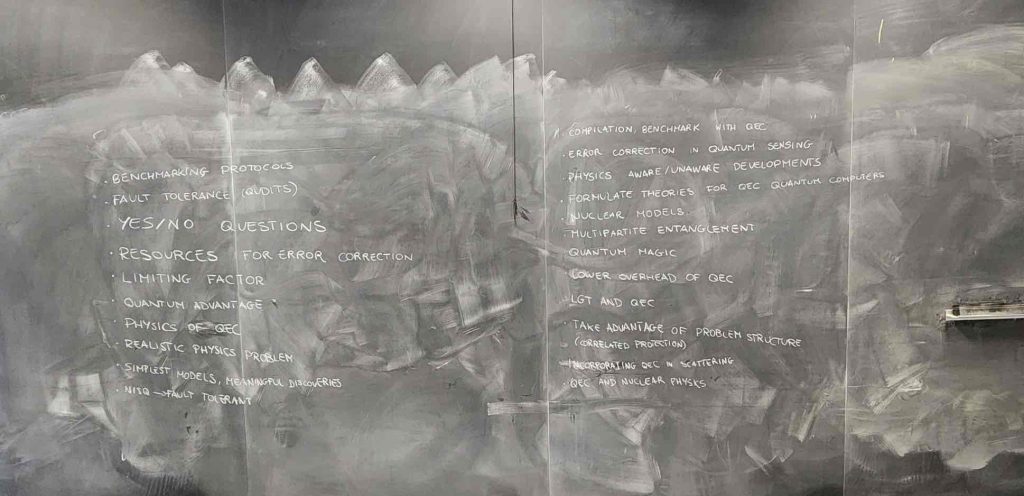 · BENCHMARKING PROTOCOLS
· FAULT TOLERANCE (QUDITS)
· YES/NO QUESTIONS
· RESOURCES FOR ERROR CORRECTION
· LIMITING FACTOR
· QUANTUM ADVANTAGE
· PHYSICS OF QEC
· REALISTIC PHYSICS PROBLEM
· SIMPLEST MODELS, MEANINGFUL DISCOVERIES
· NISQ → FAULT TOLERANT
· COMPILATION, BENCHMARK WITH QEC
· ERROR CORRECTION IN QUANTUM SENSING
· PHYSICS AWARE/UNAWARE DEVELOPMENTS
· FORMULATE THEORIES FOR QEC QUANTUM COMPUTERS
· NUCLEAR MODELS
· MULTIPARTITE ENTANGLEMENT
QUANTUM MAGIC
· LOWER OVERHEAD OF QEC
· LGT AND QEC
· TAKE ADVANTAGE OF PROBLEM STRUCTURE
(CORRELATED PROTECTION)
· INCORPORATING QEC IN SCATTERING
· QEC AND NUCLEAR PHYSICS